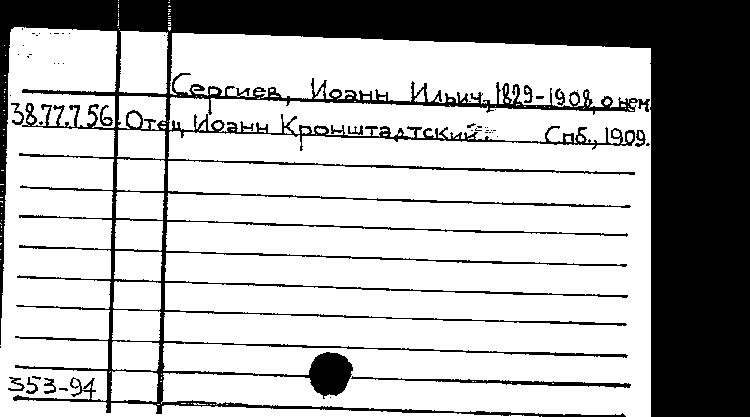 Сергиев, Иоанн Ильич, 1829-1908, о нем.
38.77.7.56. Отец Иоанн Кронштадтский. Спб., 1909.
353-94